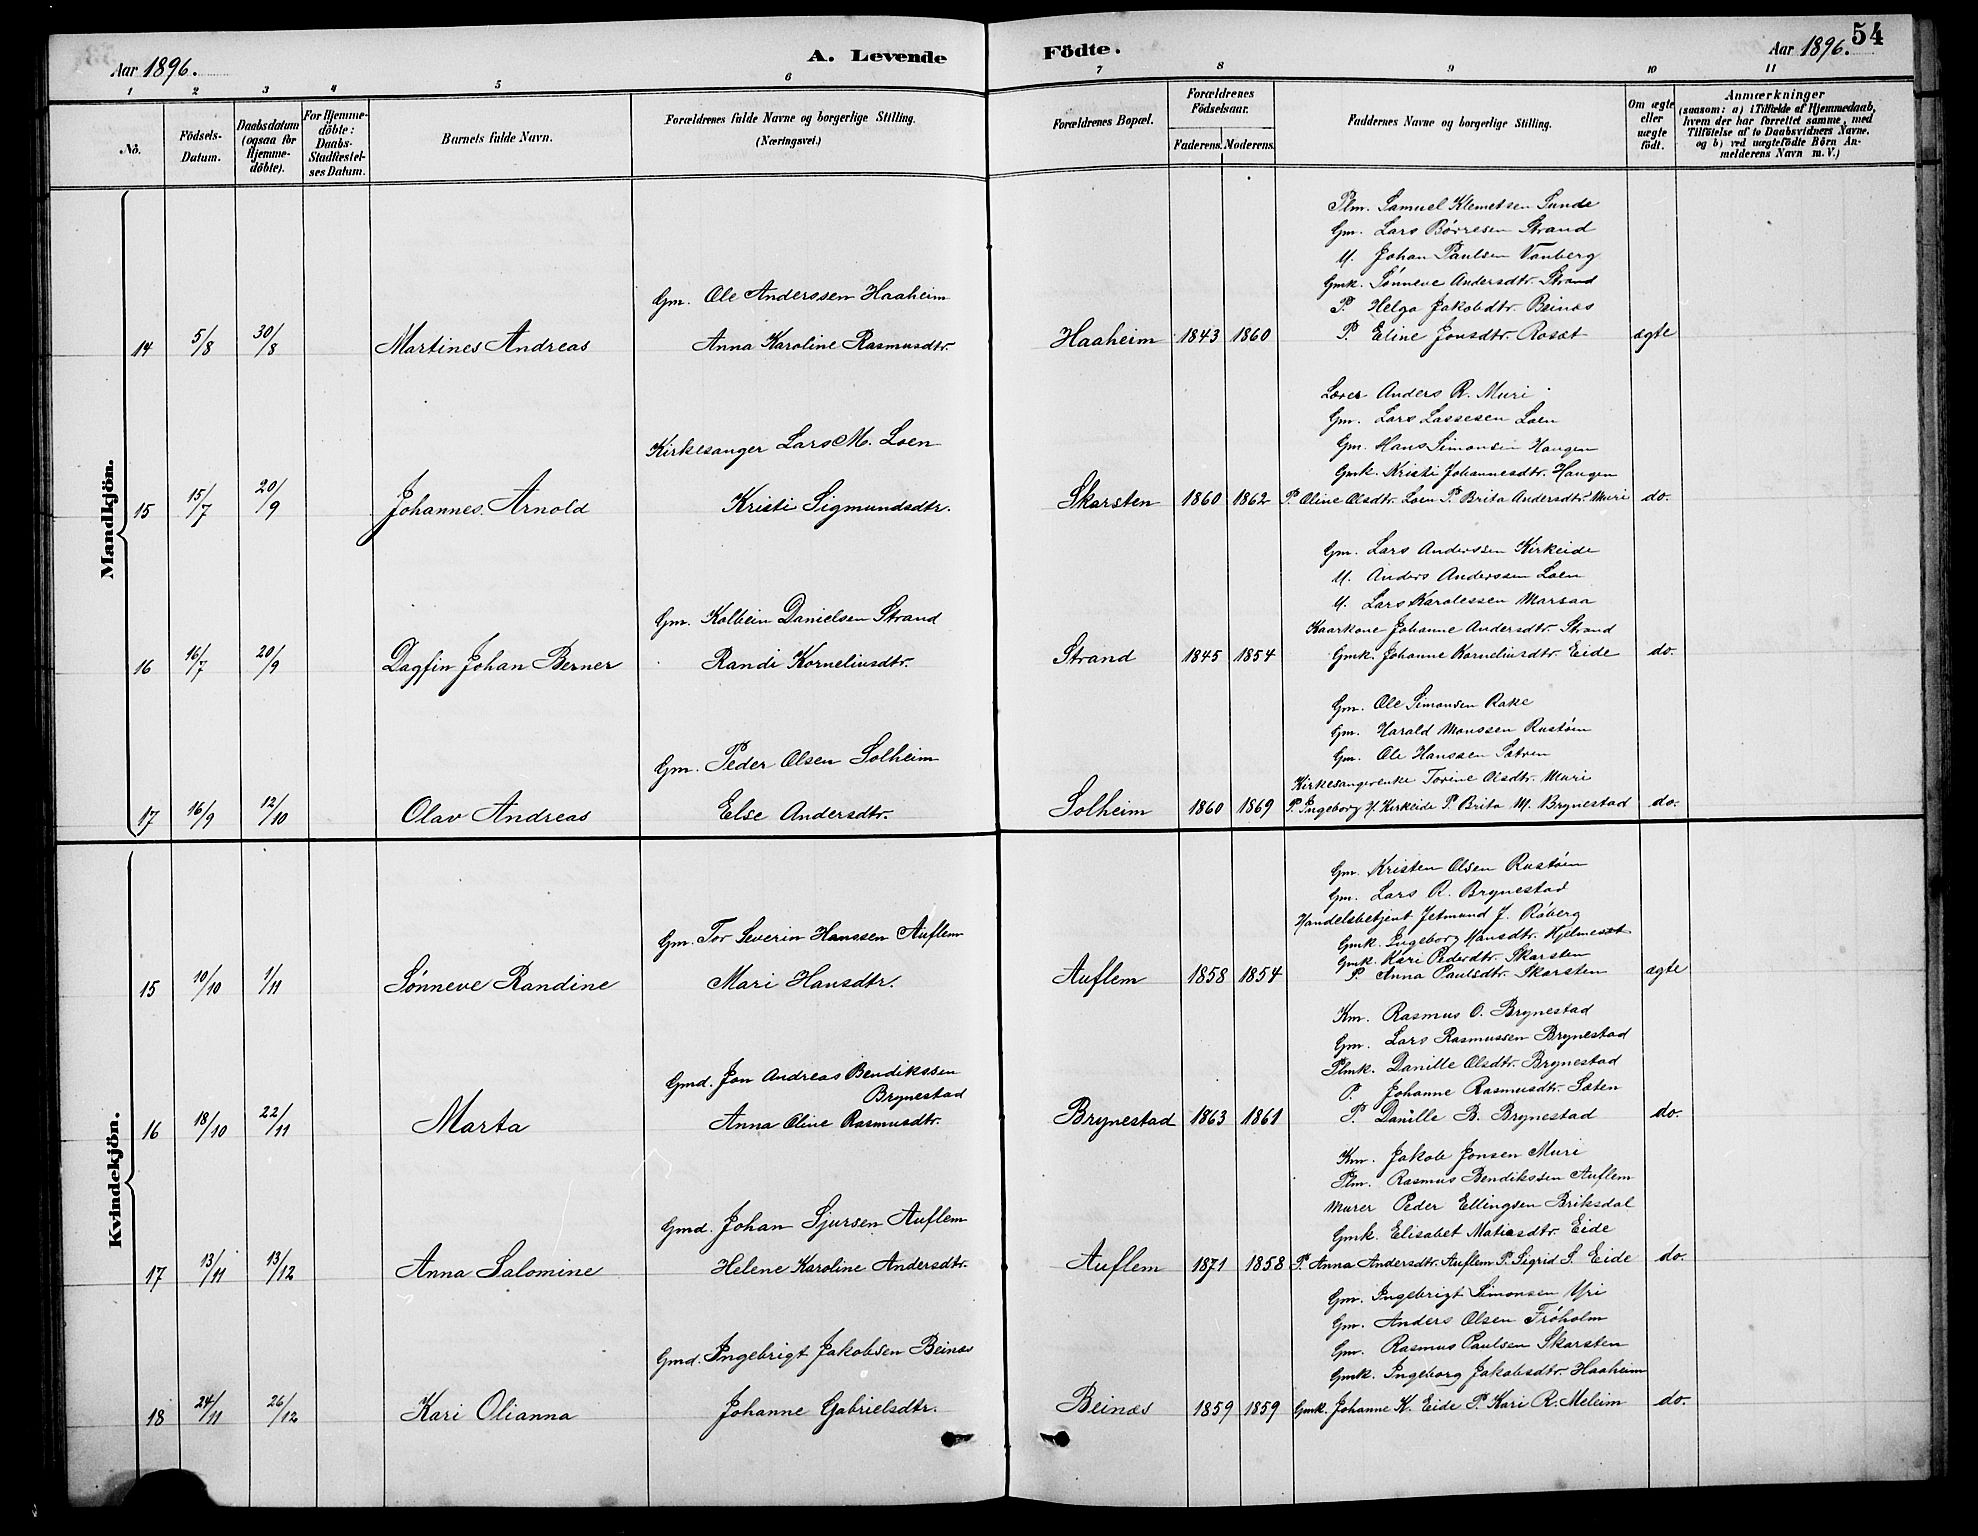 Aar 1896.
A. Levende
Födte.
Aar 1896.
54
1 2 3 4 5 6 7 8 9 10 11
No.
Födsels-Datum.
Daabsdatum (ogsaa for Hjemme-döbte).
For Hjemme-döbte: Daabs-Stadfæstel-ses Datum.
Barnets fulde Navn.
Forældrenes fulde Navne og borgerlige Stilling.
(Næringsvei.)
Forældrenes Bopæl.
Forældrenes Födselsaar.
Faderens. Moderens.
Faddernes Navne og borgerlige Stilling.
Om ægte eller uægte födt.
Anmærkninger
(saasom: a) i Tilfælde af Hjemmedaab, hvem der har forrettet samme, med Tilföielse af to Daabsvidners Navne, og b) ved uægtefödte Börn An-melderens Navn m. V.)
Mandkjön.
Plm. Samuel Klemetsen Sunde
Gm. Lars Börresen Strand
U. Johan Paulsen Vanberg
Gmk. Sönneve Andersdtr. Strand
Gm. Ole Anderssen Haaheim
P. Helga Jakobdtr. Beinæs
14 5/8 30/8 Martines Andreas Anna Karoline Rasmusdtr. Haaheim 1843 1860 P. Eline Jonsdtr. Rosæt ægte
Lærer Anders R. Muri
Gm. Lars Lassesen Loen
Kirkesanger Lars M. Loen
Gm. Hans Simonsen Haugen
Gmk. Kristi Johannesdtr. Haugen
15 15/7 20/9 Johannes Arnold Kristi Sigmundsdtr. Skarsten 1860 1862 P. Oline Olsdtr. Loen P. Brita Andersdtr. Muri do.
Gm. Lars Anderssen Kirkeide
U. Anders Anderssen Loen
U. Lars Karolessen Marsaa
Gm. Kolbein Danielsen Strand
Kaarkone Johanne Andersdtr. Strand
16 16/7 20/9 Dagfin Johan Berner Randi Korneliusdtr. Strand 1845 1854 Gmk. Johanne Korneliusdtr. Eide do.
Gm. Ole Simonsen Rake
Gm. Harald Monssen Rustöen
Gm. Peder Olsen Solheim
Gm. Ole Hanssen Sætren
Kirkesangerenke Torine Olsdtr. Muri
17 16/9 12/10 Olav Andreas Else Andersdtr. Solheim 1860 1869 P. Ingeborg H. Kirkeide P. Brita M. Brynestad do.
Kvindekjön.
Gm. Kristen Olsen Rustöen
Gm. Lars R. Brynestad
Handelsbetjent Jetmund J. Röberg
Gm. Tor Severin Hanssen Auflem
Gmk. Ingeborg Hansdtr. Hjelmeset
Gmk. Kari Pedersdtr. Skarsten
15 10/10 1/11 Sönneve Randine Mari Hansdtr. Auflem 1858 1854 P. Anna Paulsdtr. Skarsten ægte
Km. Rasmus O. Brynestad
Gm. Lars Rasmussen Brynestad
Gmd. Jon Andreas Bendikssen Brynestad
Plmk. Danille Olsdtr. Brynestad
P. Johanne Rasmusdtr. Sæten
16 18/10 22/11 Marta Anna Oline Rasmusdtr. Brynestad 1863 1861 P. Danille B. Brynestad do.
Km. Jakob Jonsen Muri
Plm. Rasmus Bendikssen Auflem
Murer Peder Ellingsen Briksdal
Gmd. Johan Sjursen Auflem
Gmk. Elisabet Matiasdtr. Eide
17 13/11 13/12 Anna Salomine Helene Karoline Andersdtr. Auflem 1871 1858 P. Anna Andersdtr. Auflem P. Sigrid S. Eide do.
Gm. Ingebrigt Simonsen Yri
Gm. Anders Olsen Fröholm
Gmd. Ingebrigt Jakobsen Beinæs
Gm. Rasmus Paulsen Skarsten
Gmk. Ingeborg Jakobsdtr. Haaheim
18 24/11 26/12 Kari Olianna Johanne Gabrielsdtr. Beinæs 1859 1859 Gmk. Johanne K. Eide P. Kari R. Meleim do.